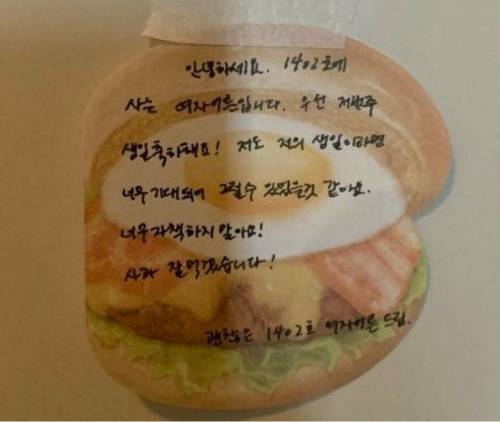 안녕하세요. 1402호에
사는 여자어른입니다. 우선 저번주
생일축하해요! 저도 저의 생일이라면
너무 기대되어 그럴수 있었을것 같아요.
너무자책하지 말아요!
사과 잘먹겠습니다!
괜찮은 1402호 여자어른 드림.